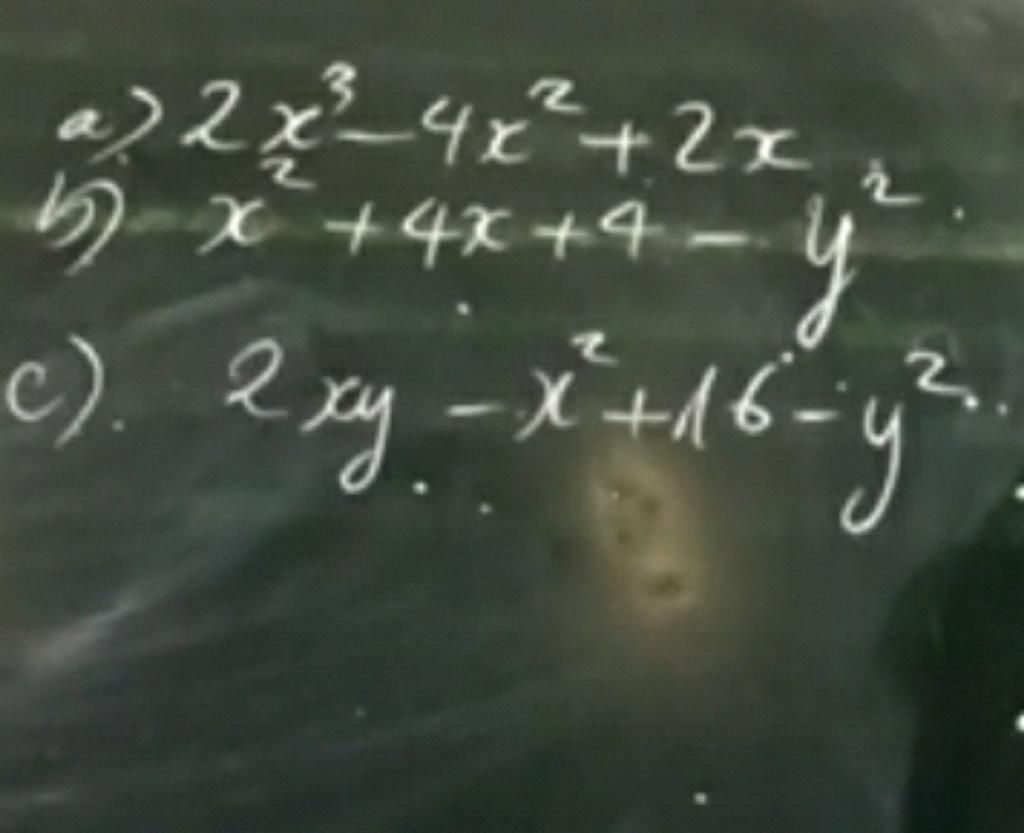 a) 2x³ - 4x² + 2x
b) x² + 4x + 4 - y²
c). 2xy - x² + 16 - y²